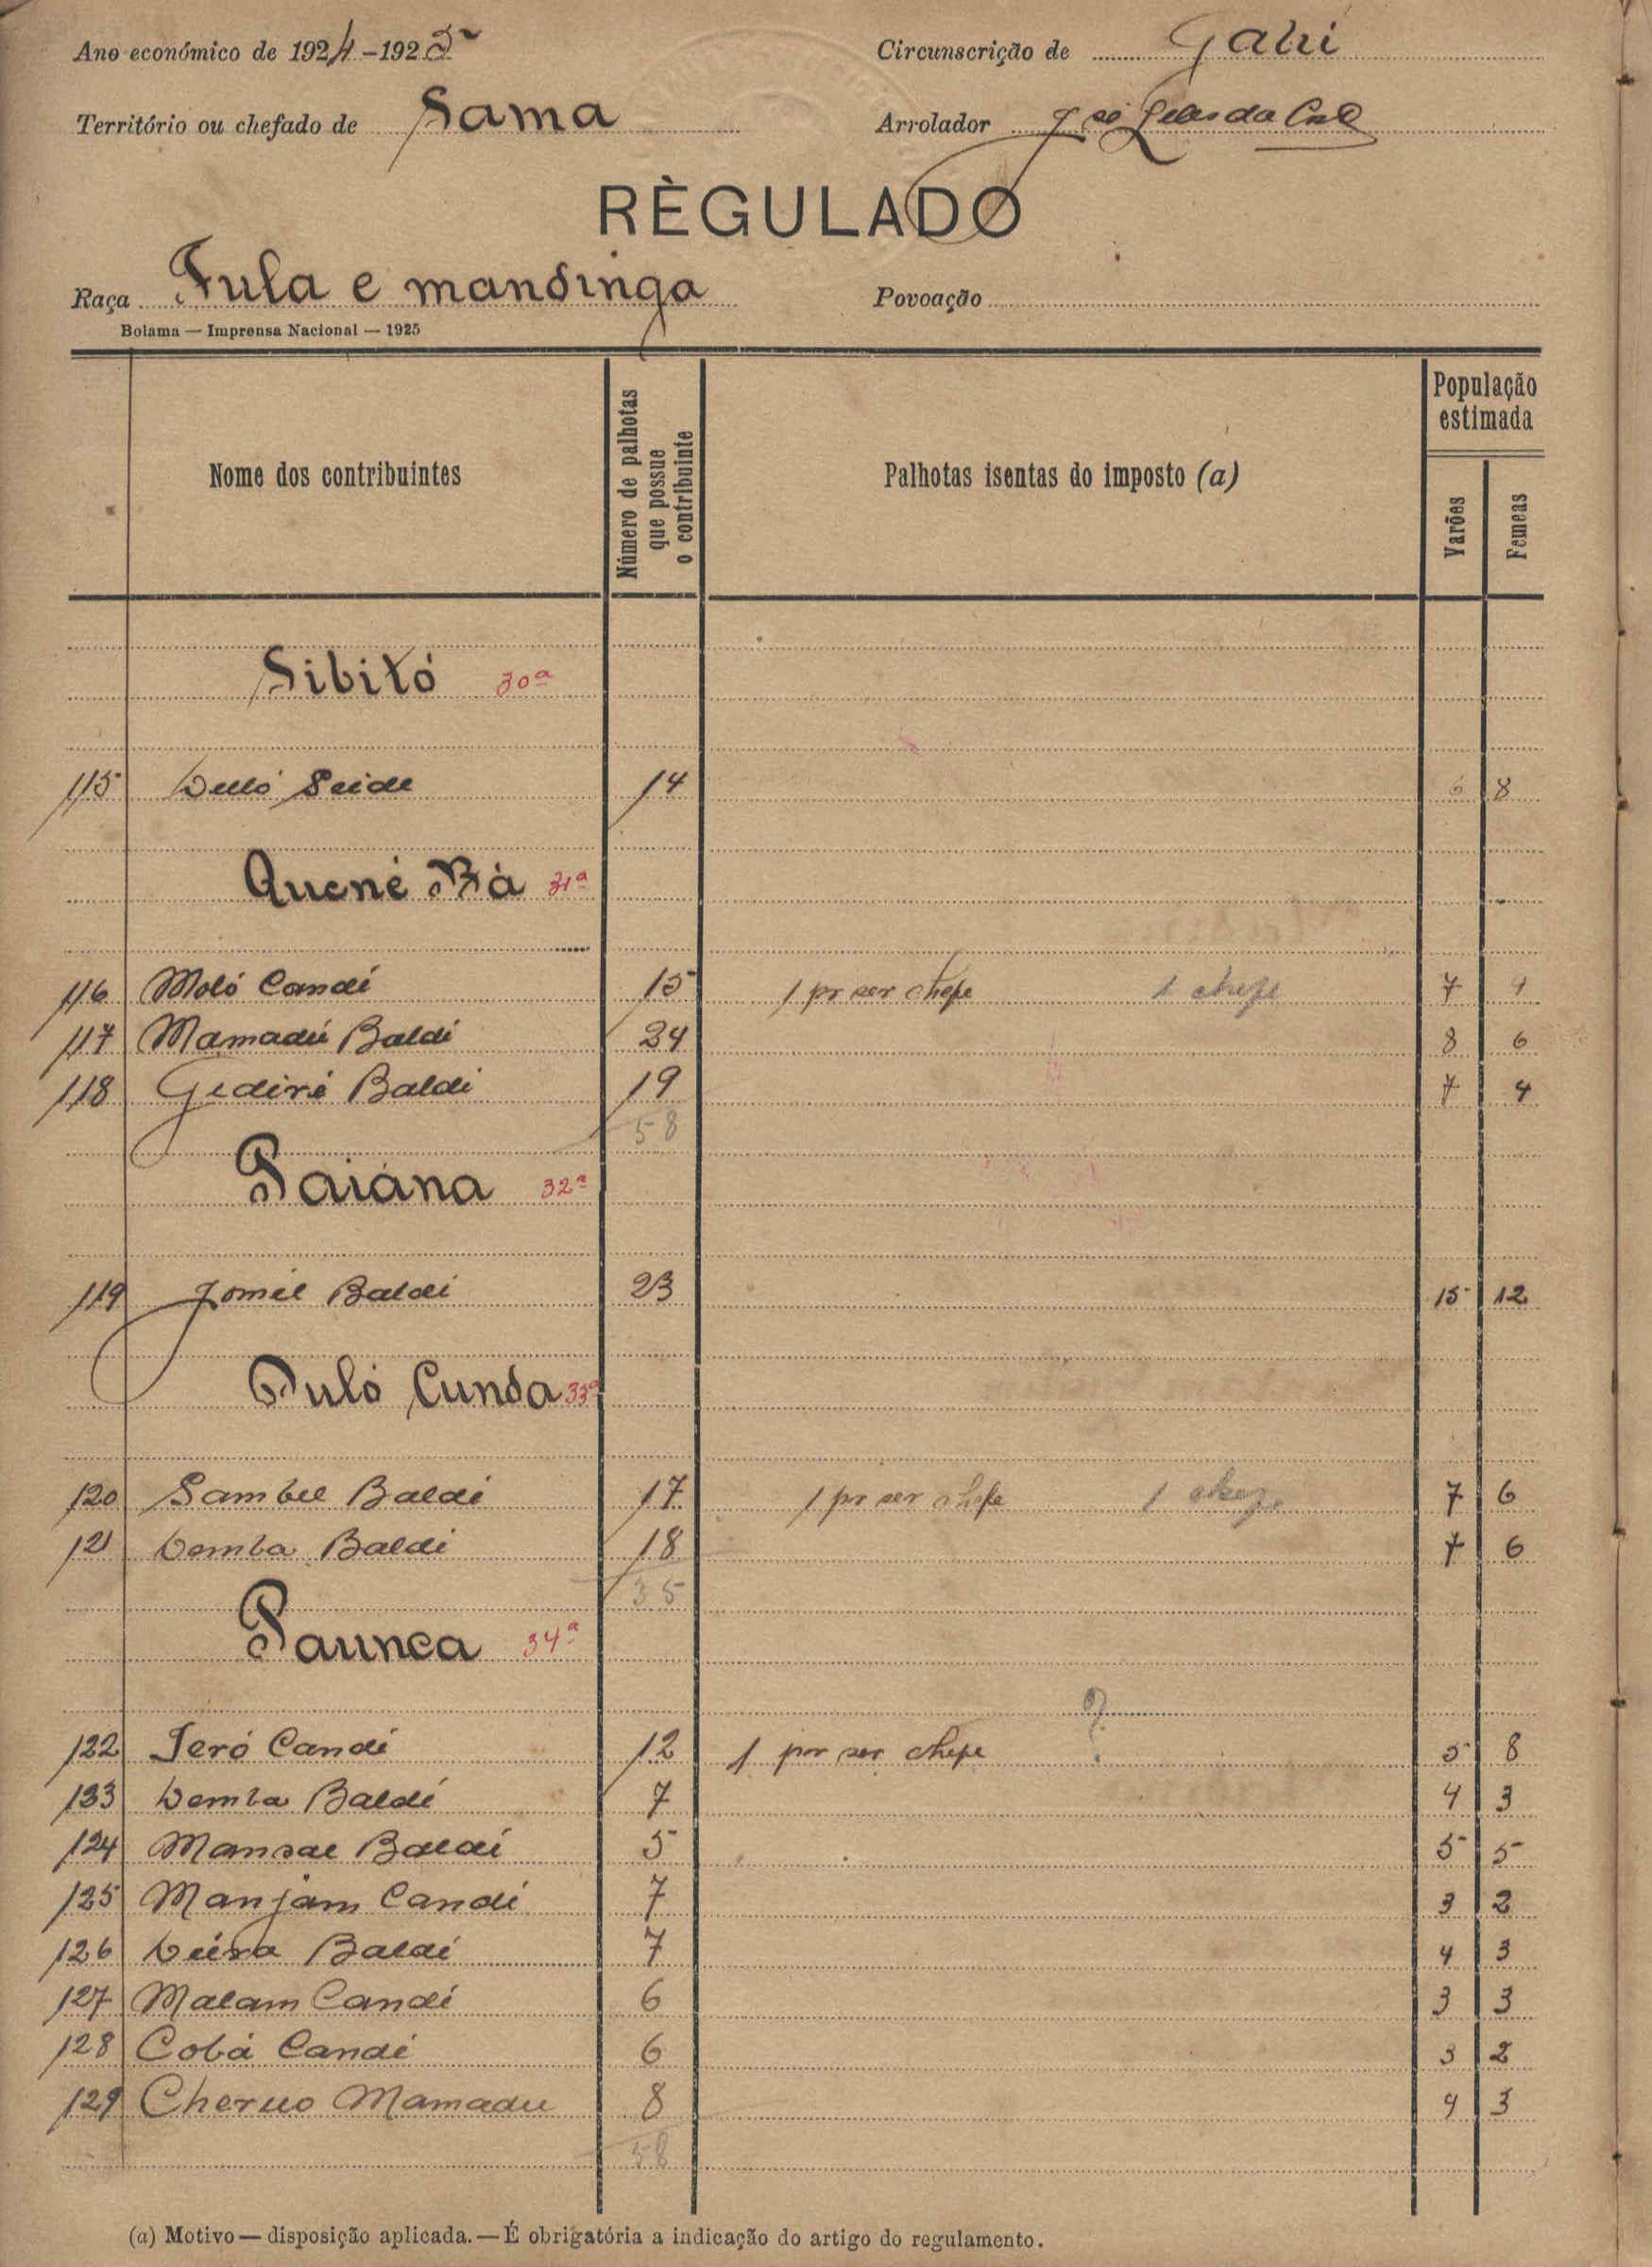 Ano económico de 1924-1925
Circunscrição de Gabú
Território ou chefado de Sama
Arrolador
RÈGULADO
Raça Fula e mandinga
Povoação
Bolama — Imprensa Nacional — 1925
Nome dos contribuintes
Número de palhotas que possue o contribuinte
Palhotas isentas do imposto (a)
População estimada
Varões
Femeas
Sibitó 30ª
115 Seide 14 6 8
Quené Bà 31ª
116 Moló Candé 15 1 pr ser chefe 1 chefe 7 4
117 Mamadú Baldé 24 8 6
118 Baldé 19 7 4
58
Paiána 32ª
119 Baldé 23 15 12
Duló Cunda 33ª
120 Sambel Baldé 17 1 pr ser chefe 1 chefe 7 6
121 Demba Baldé 18 7 6
35
Paunca 34ª
?
122 Jeró Candé 12 1 por ser chefe 5 8
133 Demba Baldé 7 4 3
124 Baldé 5 5 5
125 Manjam Candé 7 3 2
126 Baldé 7 4 3
127 Malam Candé 6 3 3
128 Cobá Candé 6 3 2
129 Cherno Mamadu 8 4 3
58
(a) Motivo — disposição aplicada. — É obrigatória a indicação do artigo do regulamento.